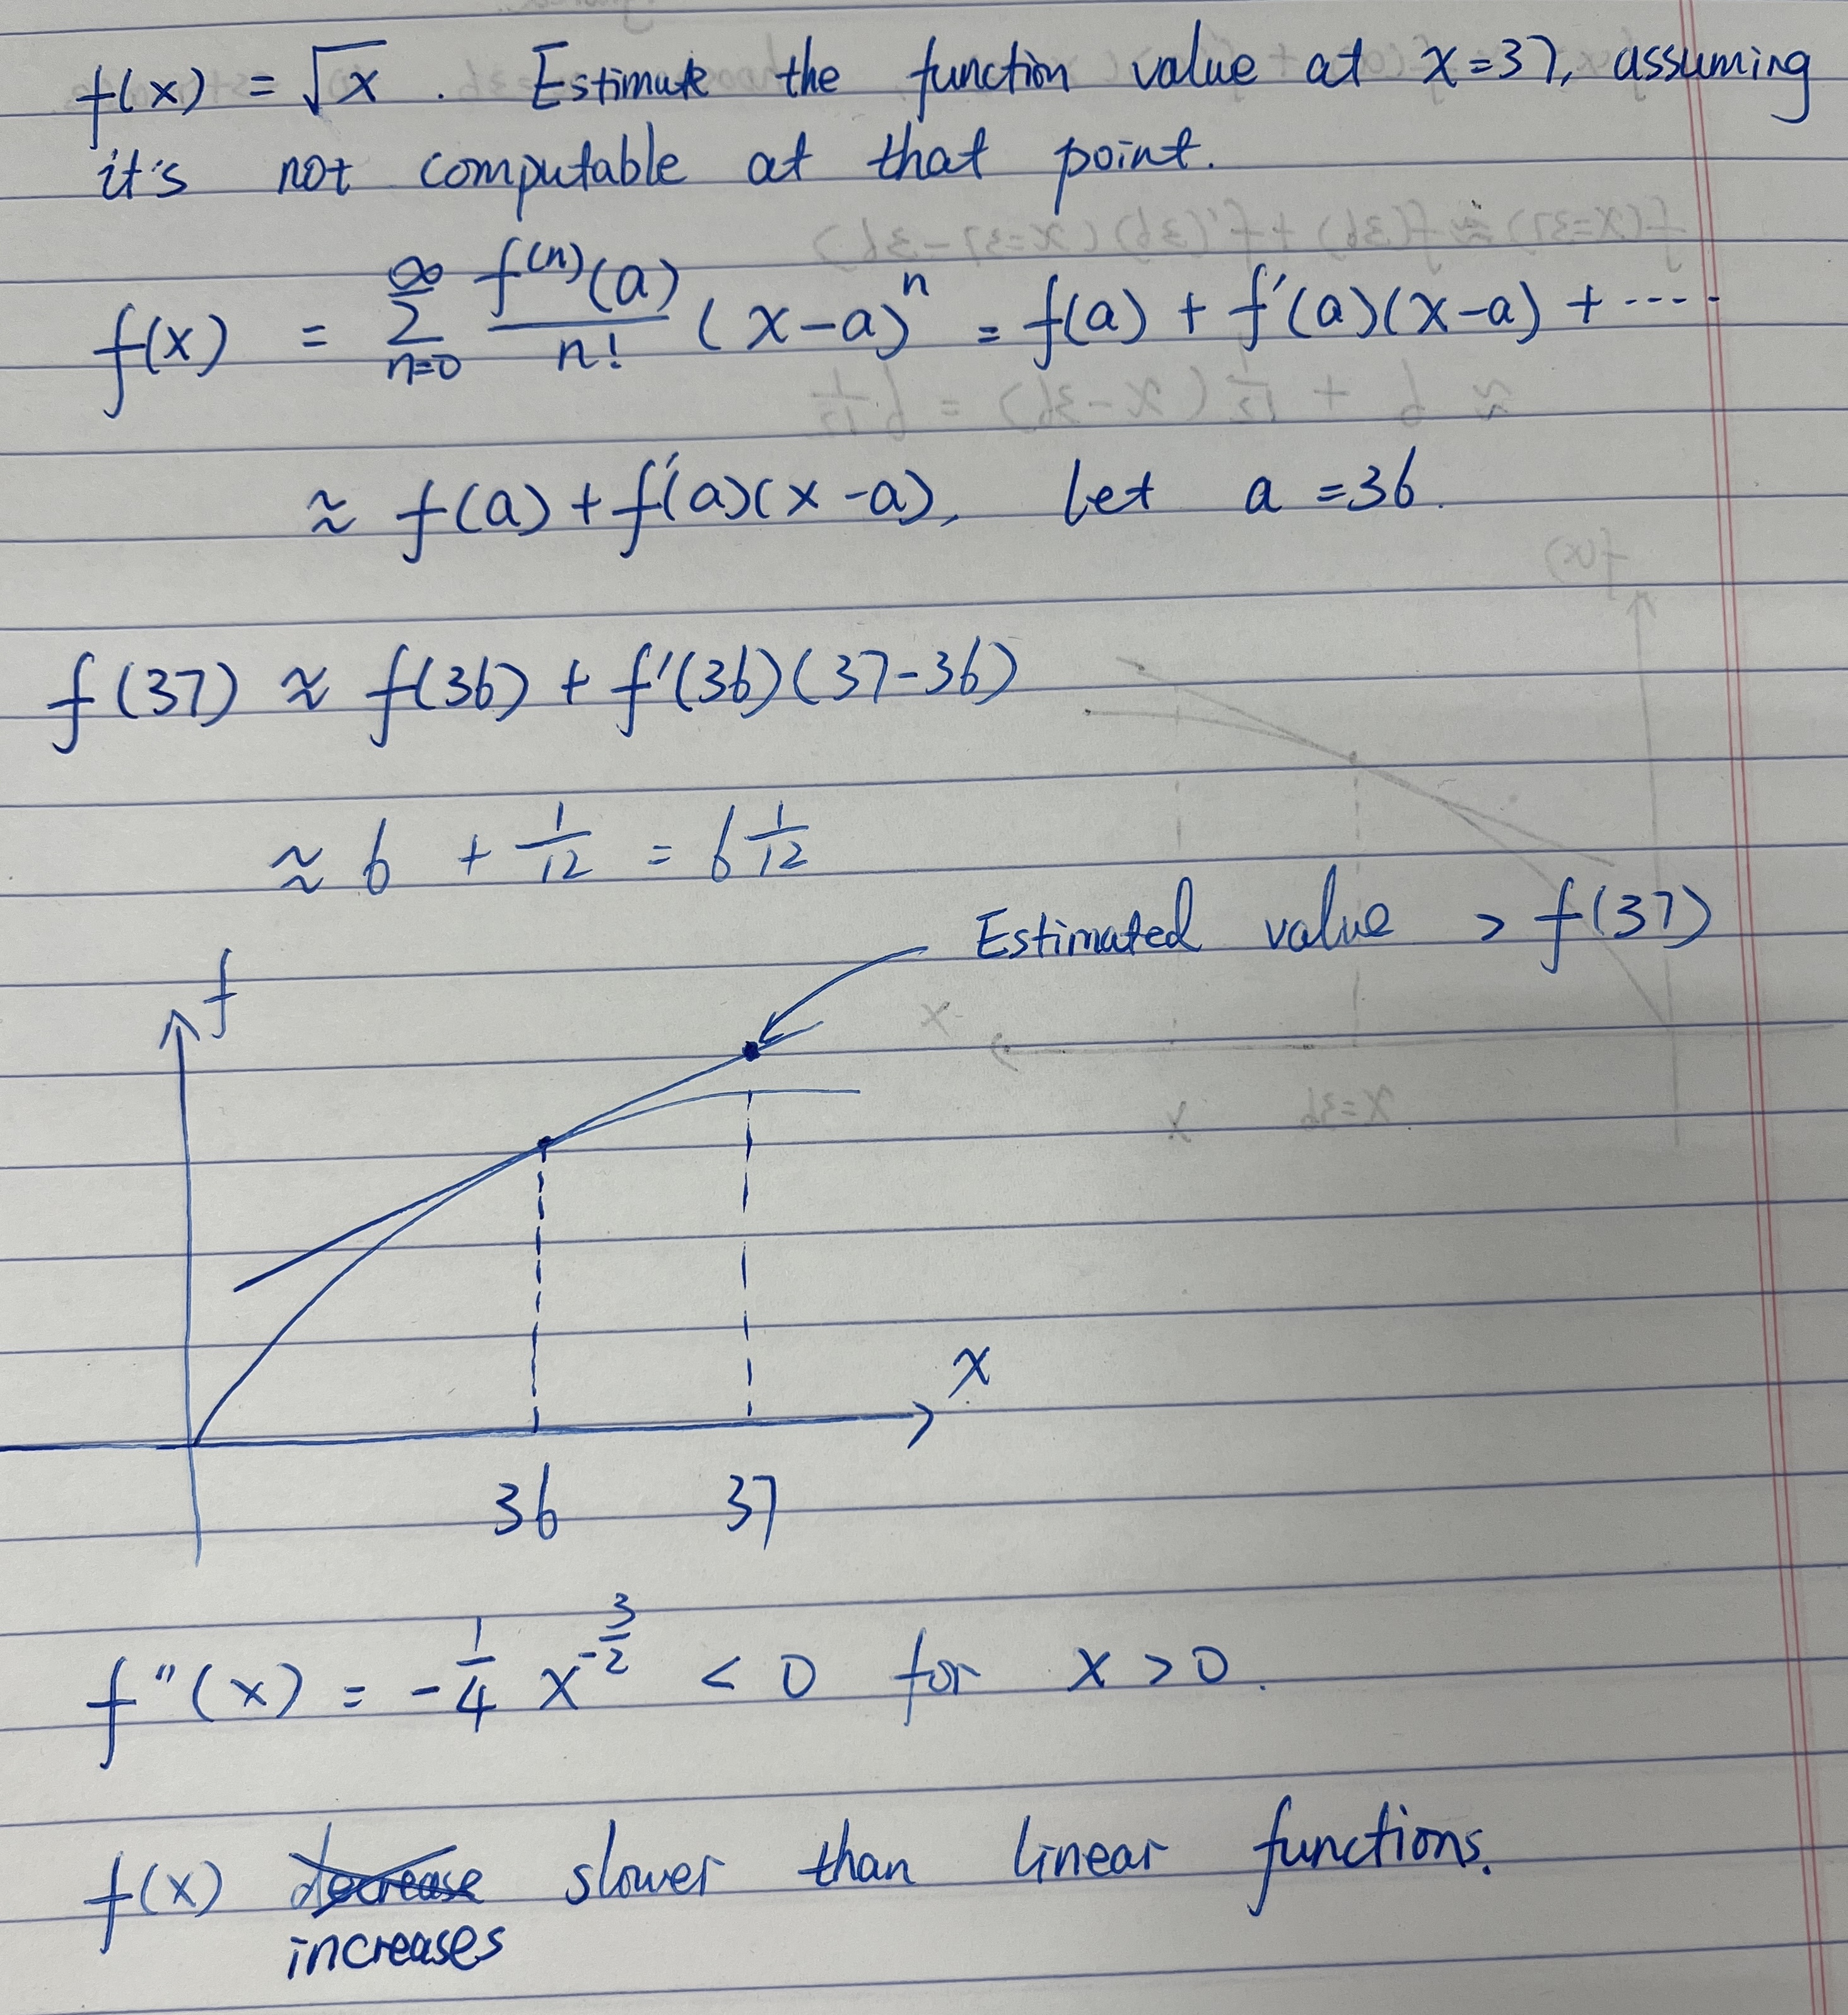 f(x) = √x . Estimate the function value at x=37, assuming
it's not computable at that point.
f(x) = ∑_{n=0}^{∞} f^{(n)}(a)/n! (x-a)^n = f(a) + f'(a)(x-a) + ....
≈ f(a) + f'(a)(x-a), let a = 36.
f(37) ≈ f(36) + f'(36)(37-36)
≈ 6 + 1/12 = 6 1/12
Estimated value > f(37)
f
x
36 37
f''(x) = -1/4 x^{-3/2} < 0 for x > 0.
f(x) decrease slower than linear functions.
increases